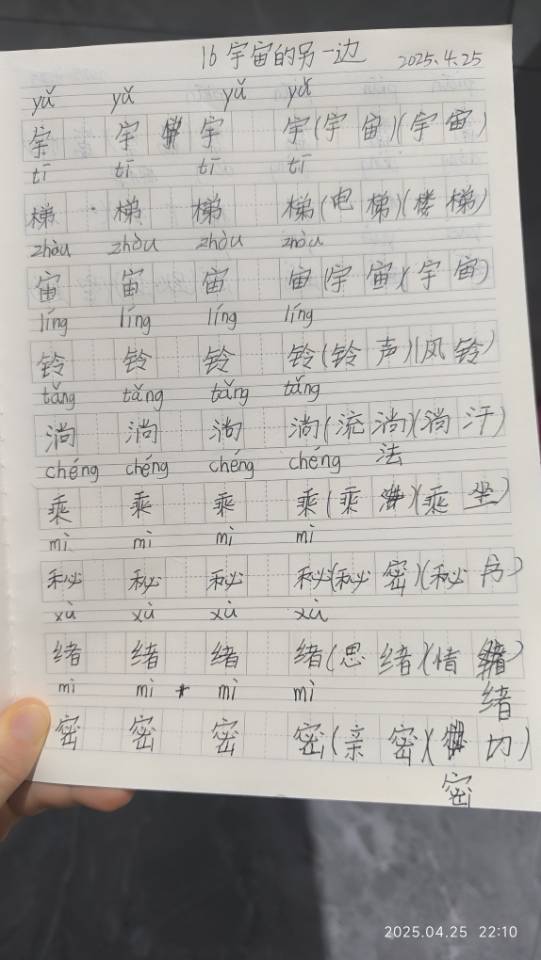 16 宇宙的另一边 2025.4.25
yǔ yǔ yǔ yǔ
宇 宇 宇 宇(宇宙)(宇宙)
tī tī tī tī
梯 梯 梯 梯(电梯)(楼梯)
zhòu zhòu zhòu zhòu
宙 宙 宙 宙(宇宙)(宇宙)
líng líng líng líng
铃 铃 铃 铃(铃声)(风铃)
tǎng tǎng tǎng tǎng
淌 淌 淌 淌(流淌)(淌汗)
chéng chéng chéng chéng 法
乘 乘 乘 乘(乘)(乘坐)
mì mì mì mì
秘 秘 秘 秘(秘密)(秘书)
xù xù xù xù
绪 绪 绪 绪(思绪)(情)
mì mì mì mì 绪
密 密 密 密(亲密)(切)
密
2025.04.25 22:10